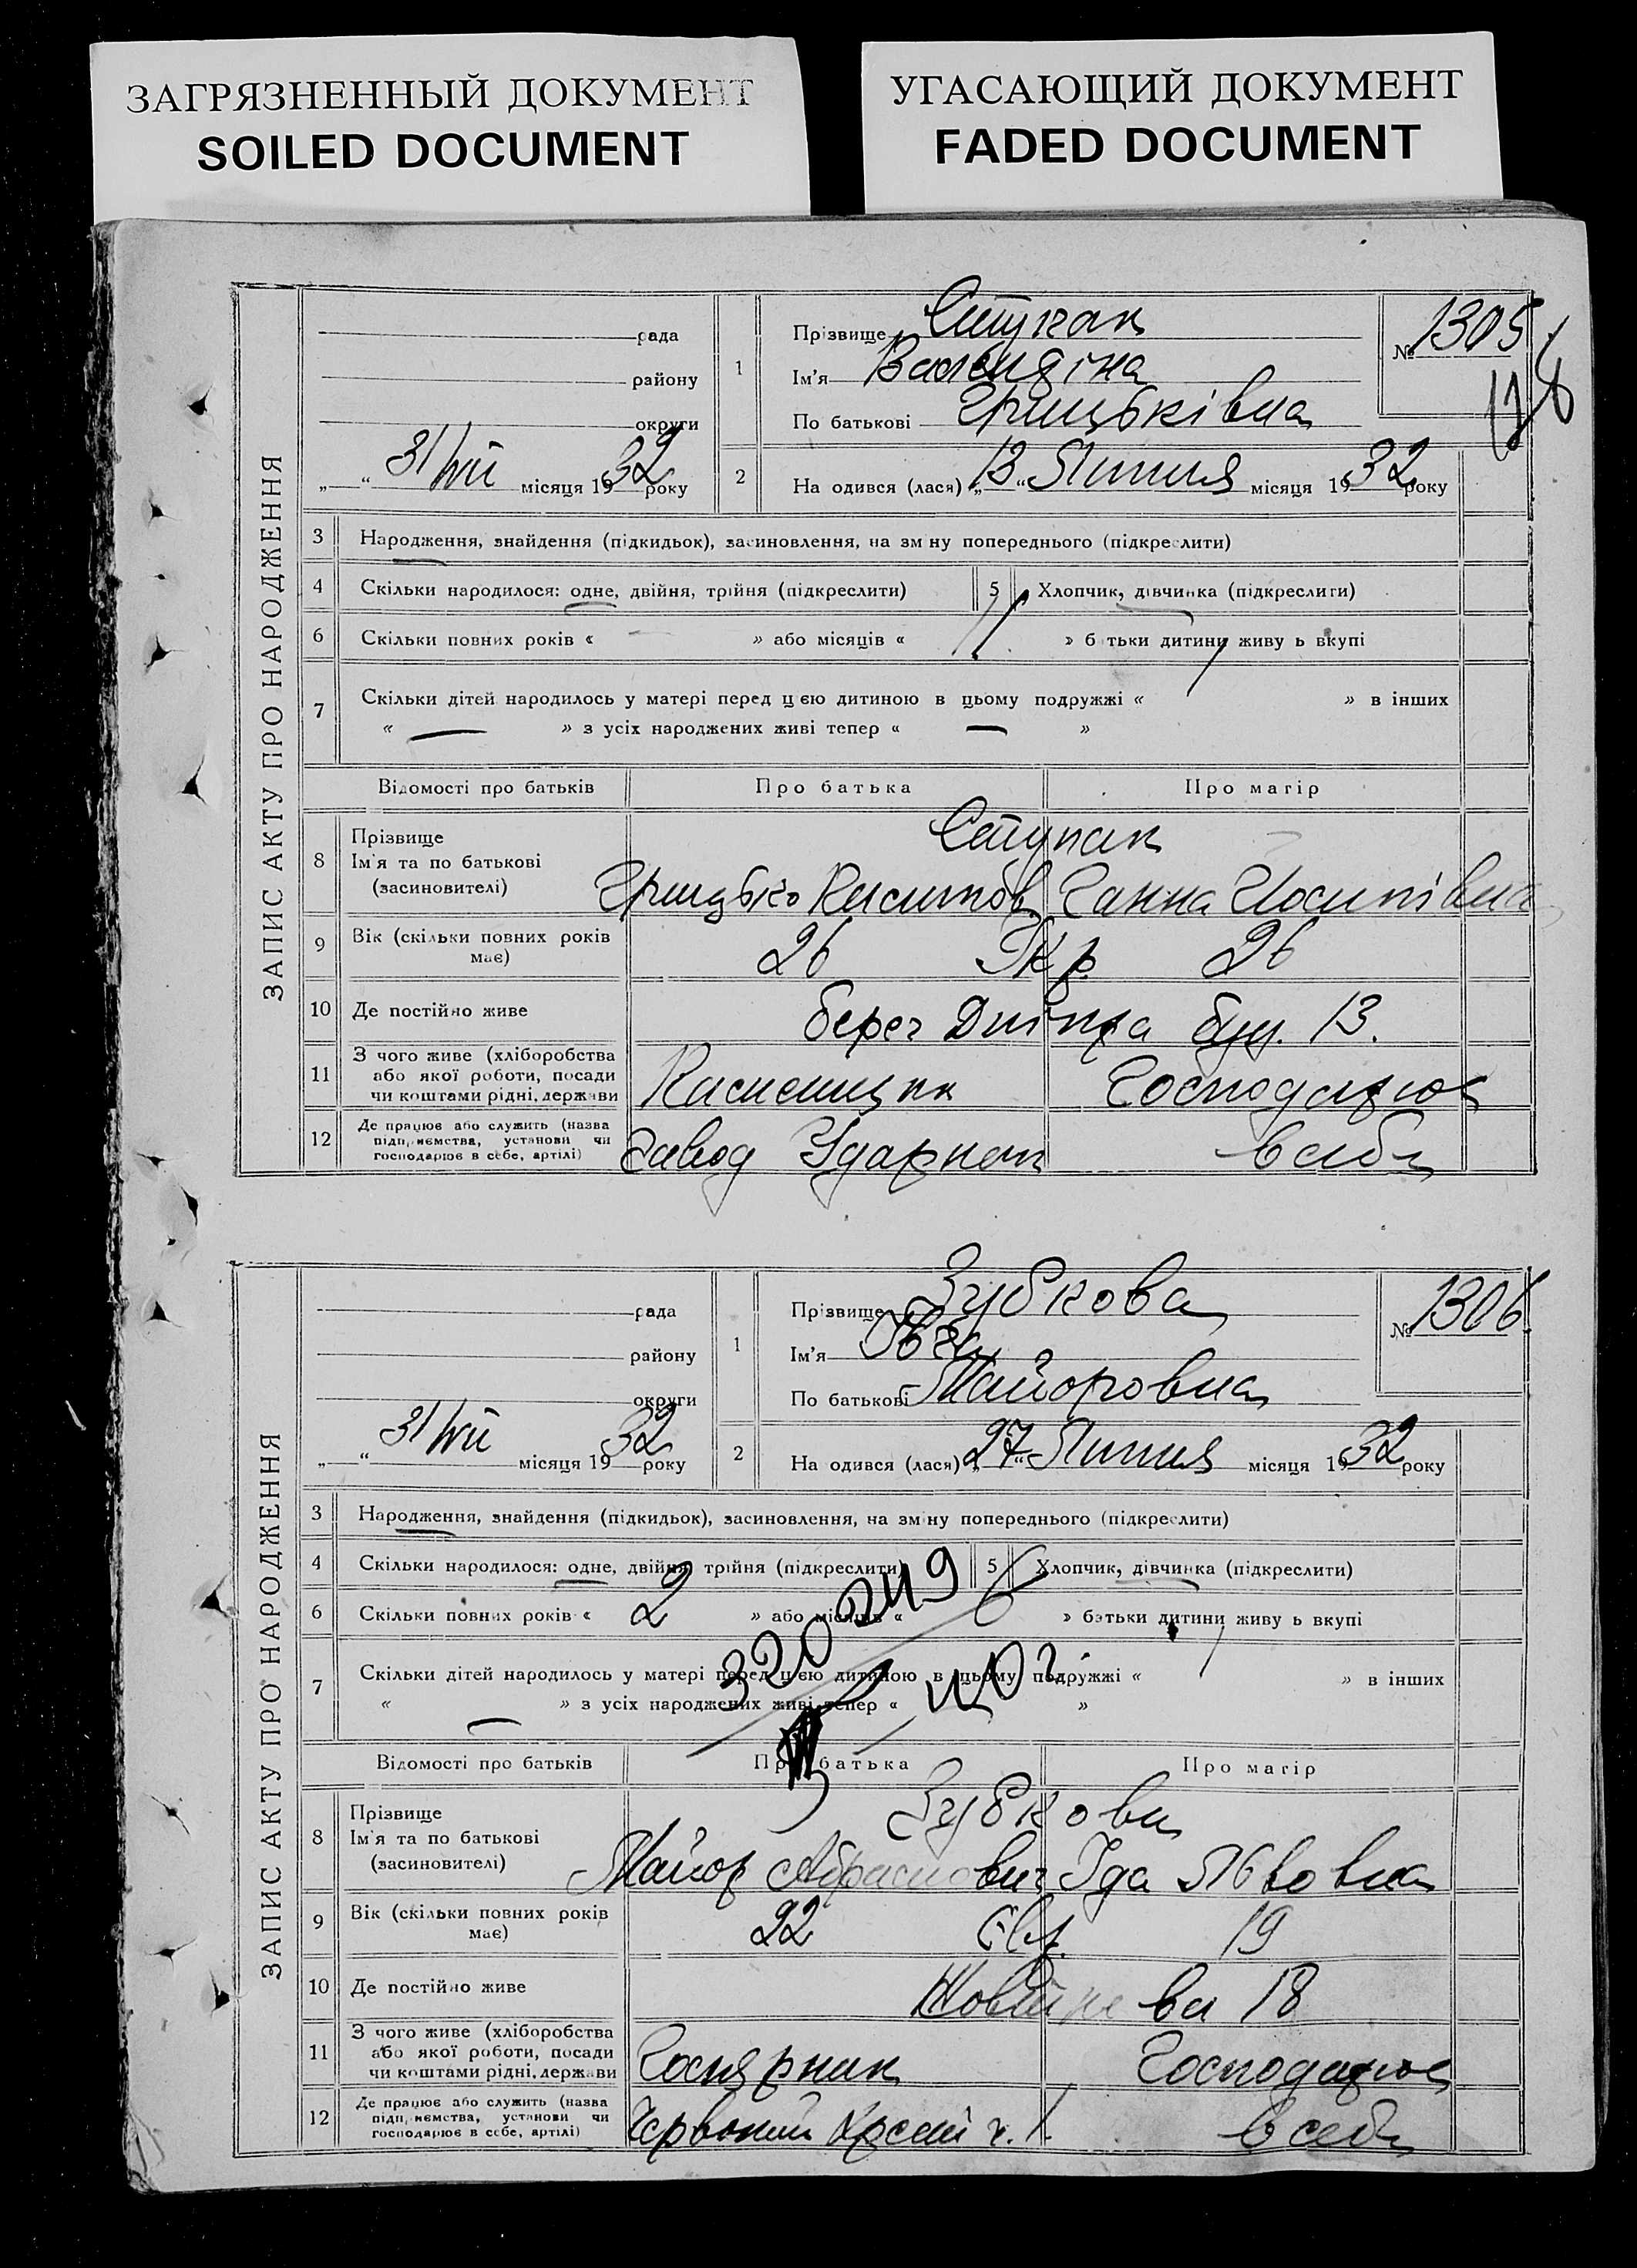 ЗАГРЯЗНЕННЫЙ ДОКУМЕНТ
SOILED DOCUMENT
УГАСАЮЩИЙ ДОКУМЕНТ
FADED DOCUMENT
ЗАПИС АКТУ ПРО НАРОДЖЕННЯ
рада
району
округи
„ “ 31/VII місяця 1932 року
1 Прізвище Ступак
Ім'я Валендіна
По батькові Грицьківна
№ 1305
178
2 На одився (лася) „13“ Липня місяця 1932 року
3 Народження, знайдення (підкидьок), засиновлення, на зміну попереднього (підкреслити)
4 Скільки народилося: одне, двійня, трійня (підкреслити)
5 Хлопчик, дівчинка (підкреслити)
6 Скільки повних років « — » або місяців « » батьки дитини живуть вкупі
7 Скільки дітей народилось у матері перед цією дитиною в цьому подружжі « » в інших
« — » з усіх народжених живі тепер « — »
Відомості про батьків
Про батька
Про матір
8 Прізвище
Ім'я та по батькові
(засиновителі)
Ступак
Грицько Ганна Йосипівна
9 Вік (скільки повних років має)
26 Укр 26
10 Де постійно живе
берег Дніпра буд. 13.
11 З чого живе (хліборобства або якої роботи, посади чи коштами рідні, держави
Господарює
12 Де працює або служить (назва підприємства, установи чи господарює в себе, артілі)
Завод Ударник в себе
ЗАПИС АКТУ ПРО НАРОДЖЕННЯ
рада
району
округи
„ “ 31/VII місяця 1932 року
1 Прізвище Зубкова
Ім'я
По батькові Майоровна
№ 1306
2 На одився (лася) „27“ Липня місяця 1932 року
3 Народження, знайдення (підкидьок), засиновлення, на зміну попереднього (підкреслити)
4 Скільки народилося: одне, двійня, трійня (підкреслити)
5 Хлопчик, дівчинка (підкреслити)
6 Скільки повних років « 2 » або місяців « » батьки дитини живуть вкупі
320249
7 Скільки дітей народилось у матері перед цією дитиною в цьому подружжі « » в інших
« — » з усіх народжених живі тепер « »
Відомості про батьків
Про батька
Про матір
8 Прізвище
Ім'я та по батькові
(засиновителі)
Зубкови
Майор Абрамович Іда Львовна
9 Вік (скільки повних років має)
22 Євр. 19
10 Де постійно живе
18
11 З чого живе (хліборобства або якої роботи, посади чи коштами рідні, держави
Господарює
12 Де працює або служить (назва підприємства, установи чи господарює в себе, артілі)
Червоний Хрест ч. 1. в себе